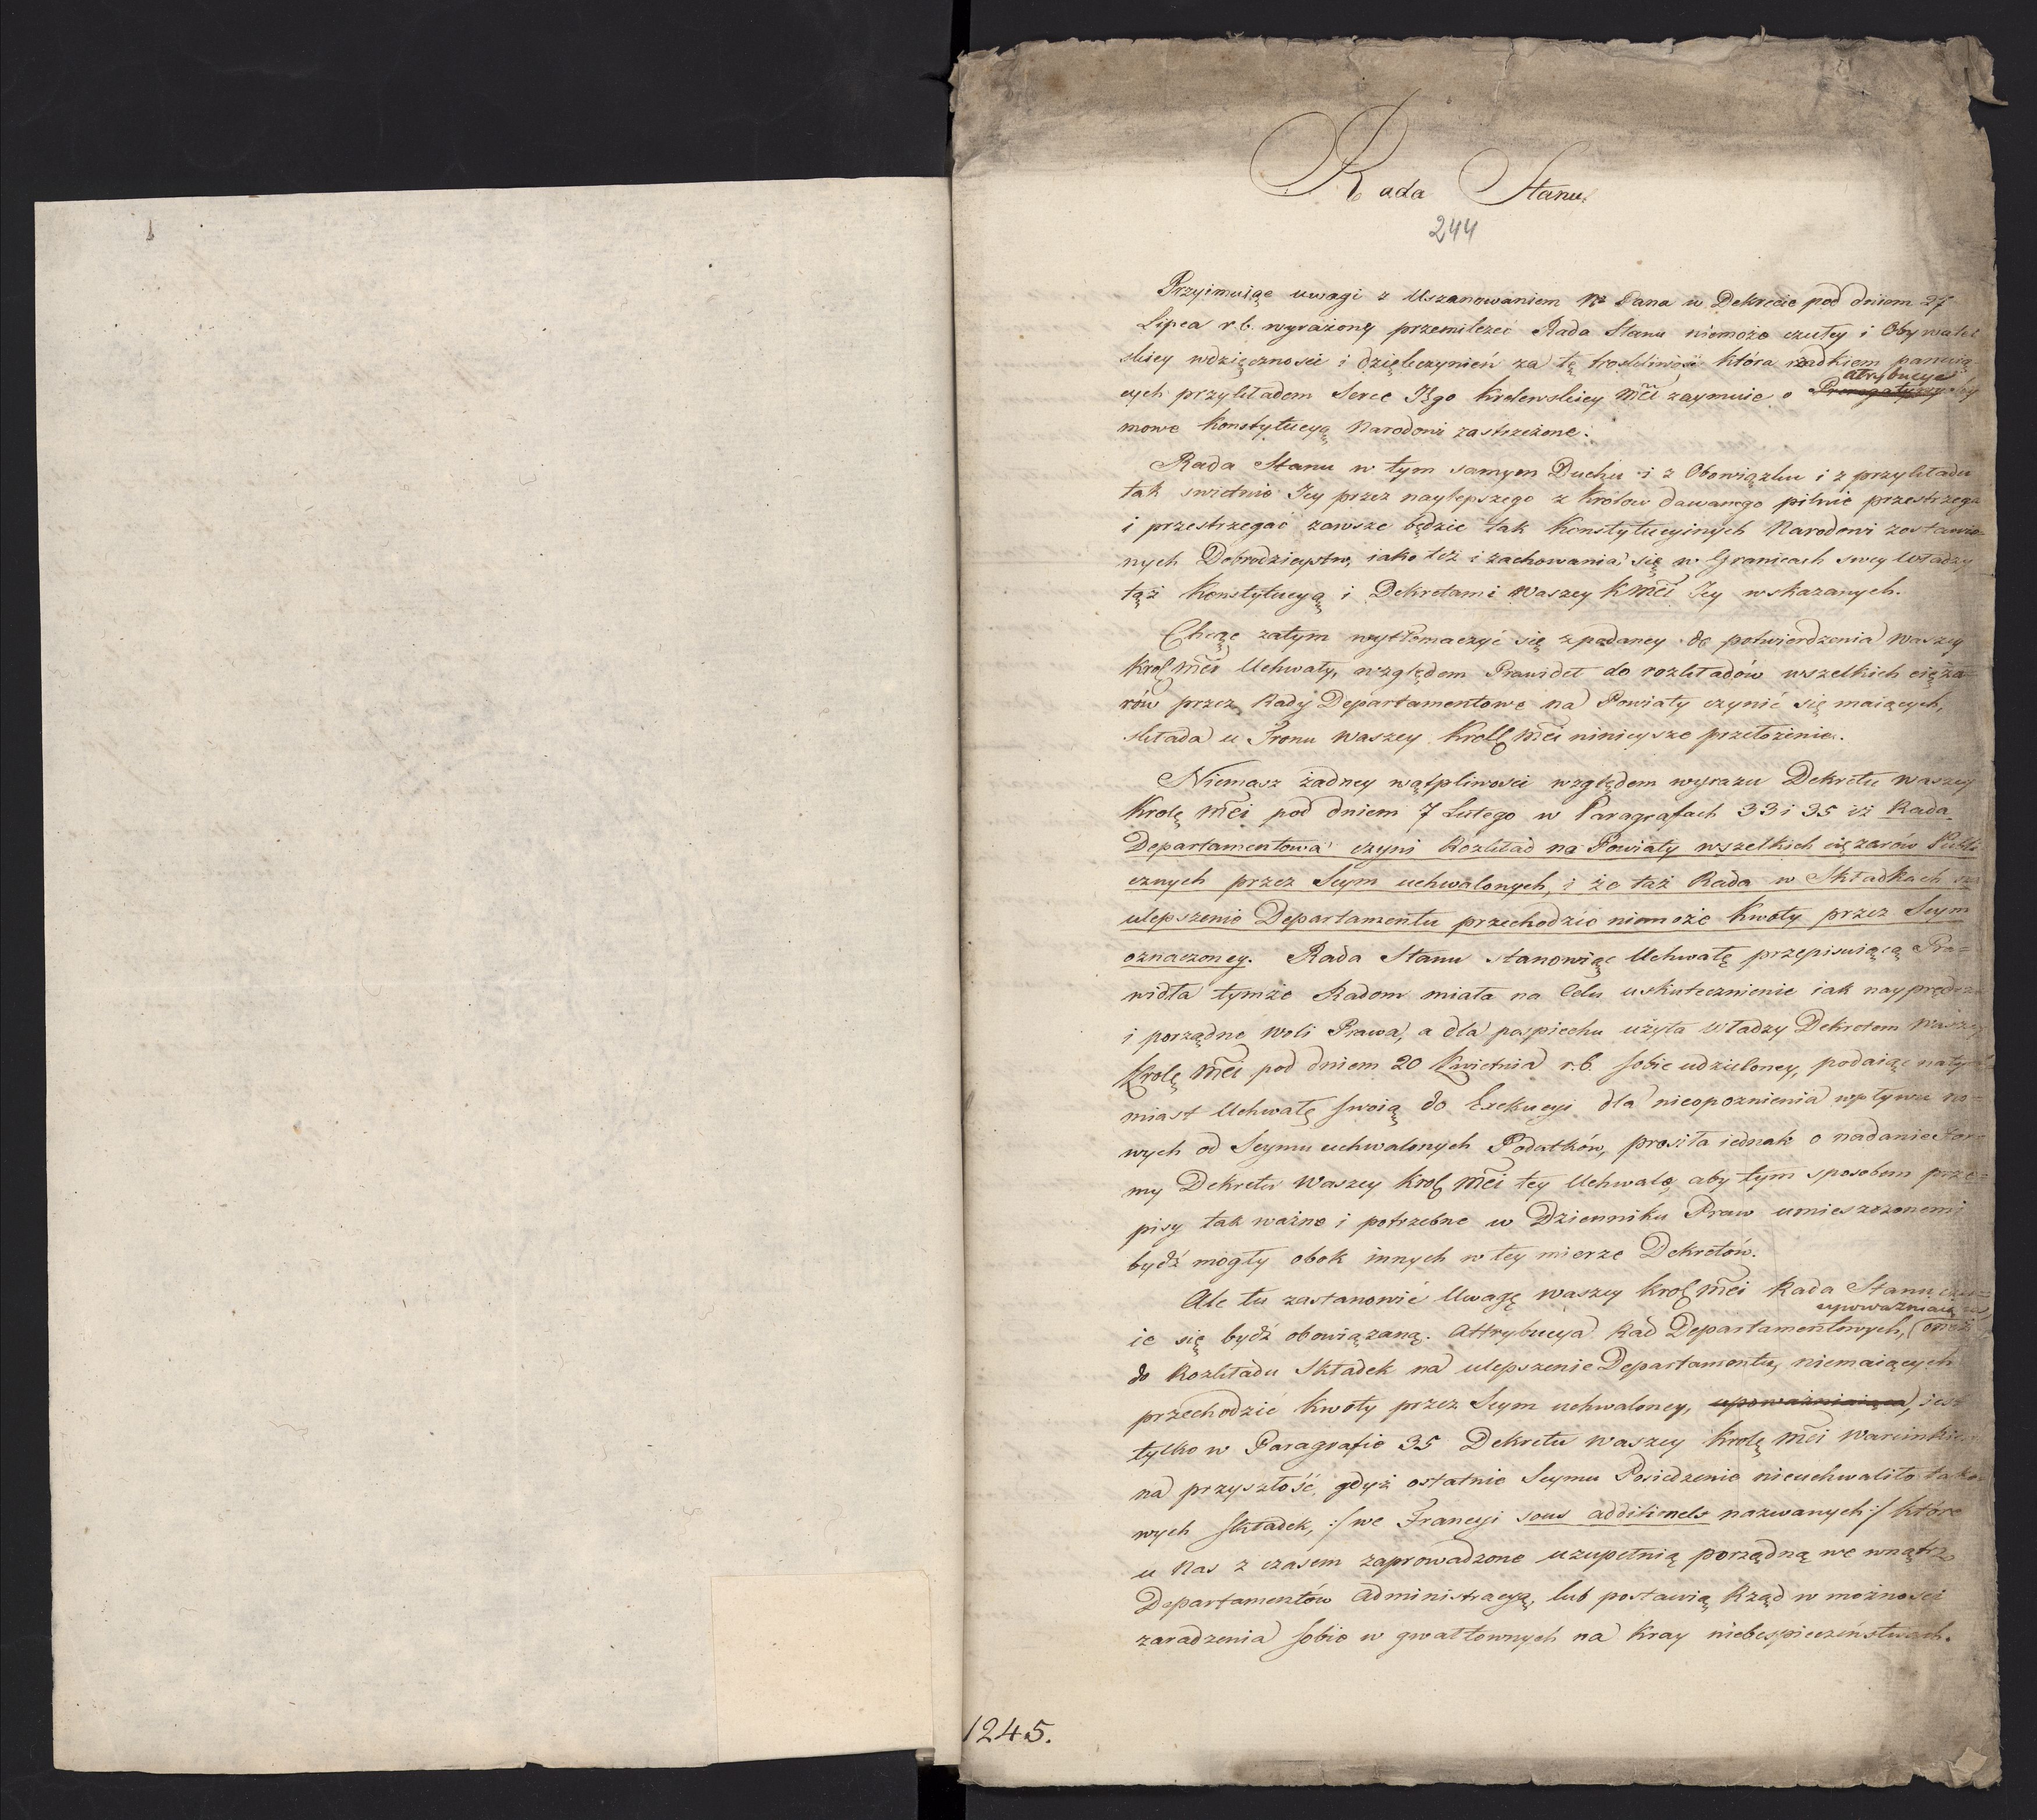 Rada Stanu.
244
Przyimuiąc uwagi z Uszanowaniem Nr Pana w Dekrecie pod dniem 27
Lipca r.b. wyrażoney przemilczeć Rada Stanu niemoże czułey i Obywatel
skiey wdzięczności i dziękczynień za tę troskliwość która rzadkiem panuią
cych przykładem Serce JKgo Krolewskiey Mci zaymuie o
atrybucye
Prerogatywy
mowe Konstytucyą Narodowi zastrzeżone.
Rada Stanu w tym samym Duchu i z Obowiązku i z przykładu
tak swietnie Jey przez naylepszego z Królow dawanego pilnie przestrzega
i przestrzegać zawsze będzie tak Konstytucyinych Narodowi zostawio-
nych Dobrodzieystw, iako też i zachowania się w Granicach swey Władzy
taż Konstytucyą i Dekretami Waszey K Mci Jey wskazanych.
Chcąc zatym wytłomaczyć się z podaney do potwierdzenia Waszey
Krol Mci Uchwały, względem Prawideł do rozkładów wszelkich cięża-
rów przez Rady Departamentowe na Powiaty czynić się maiących,
składa u Tronu Waszey Krol Mci ninieysze przełożenie.
Niemasz żadney wątpliwości względem wyrazu Dekretu Waszey
Krolę Mci pod dniem 7 Lutego w Paragrafach 33 i 35 iż Rada
Departamentowa czyni Rozkład na Powiaty wszelkich ciężarów Publi
cznych przez Seym uchwalonych, i że taż Rada w Składkach na
ulepszenie Departamentu przechodzić niemoże Kwoty przez Seym
oznaczoney. Rada Stanu stanowiąc Uchwałę przepisuiącą Pra=
widła tymże Radom miała na Celu uskutecznienie iak nayprędsze
i porządne Woli Prawa, a dla pospiechu użyła Władzy Dekretem Waszey
Krolę Mci pod dniem 20 Kwietnia r.b. sobie udzieloney, podaiąc natych
miast Uchwałę swoią do Exekucyi dla nieopoznienia wpływu no=
wych od Seymu uchwalonych Podatków, prosiła iednak o nadanie For
my Dekretu Waszey Krol Mci tey Uchwale, aby tym sposobem prze=
pisy tak ważne i potrzebne w Dzienniku Praw umieszczonemi
bydź mogły obok innych w tey mierze Dekretów.
Ale tu zastanowić Uwagę Waszey Krol Mci Rada Stanu czu=
upoważniaiąca
ie się bydź obowiązaną. Attrybucya Rad Departamentowych, oneż
do Rozkładu Składek na ulepszenie Departamentu, niemaiących
przechodzić Kwoty przez Seym uchwaloney, upoważniaiąca, jest
tylko w Paragrafie 35 Dekretu Waszey Krolę Mci Warunkiem
na przyszłość, gdyż ostatnie Seymu Posiedzenie nieuchwaliło tako
wych składek, :/ we Francyi sous additionels nazwanych :/ które
u Nas z czasem zaprowadzone uzupełnią porządną we wnątrz
Departamentów Administracyą, lub postawią Rząd w możności
zaradzenia sobie w gwałtownych na Kray niebespieczeństwach.
1245.